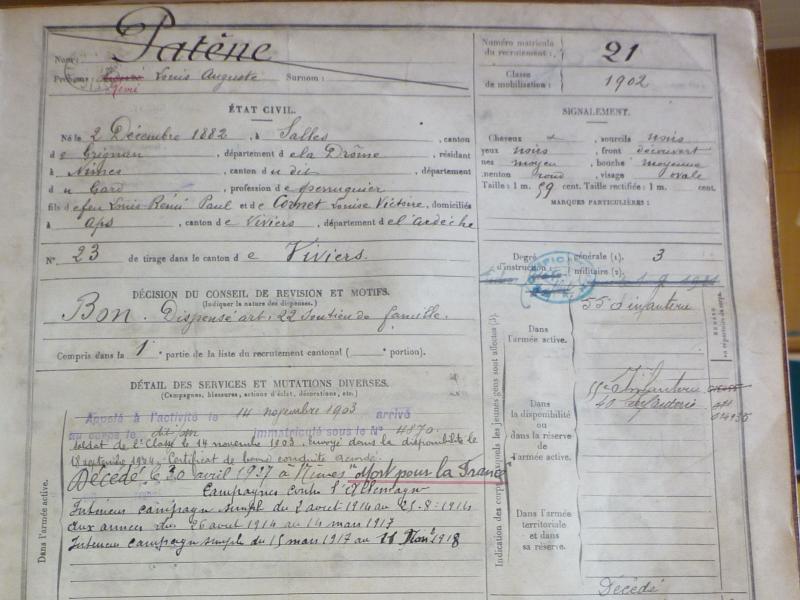 Nom : Patène
Prénoms : Louis Auguste Surnom :
Rémi
Numéro matricule du recrutement : 21
Classe de mobilisation : 1902
ÉTAT CIVIL.
Né le 2 Décembre 1882, à Salles, canton
de Grignan, département de la Drôme, résidant
à Nîmes, canton du dit, département
du Gard, profession de perruquier
fils de feu Louis Rémi Paul et de Cornet Louise Victoire, domiciliés
à Aps, canton de Viviers, département de l'Ardèche
N° 23 de tirage dans le canton de Viviers.
SIGNALEMENT.
Cheveux, sourcils noirs
yeux noirs, front découvert
nez moyen, bouche moyenne
menton rond, visage ovale
Taille : 1 m. 59 cent. Taille rectifiée : 1 m. cent.
MARQUES PARTICULIÈRES :
Degré d'instruction : générale (1). 3
militaire (2).
DÉCISION DU CONSEIL DE REVISION ET MOTIFS.
(Indiquer la nature des dispenses.)
Bon. Dispensé art. 22 Soutien de famille.
Compris dans la 1e partie de la liste du recrutement cantonal ( portion).
DÉTAIL DES SERVICES ET MUTATIONS DIVERSES.
(Campagnes, blessures, actions d'éclat, décorations, etc.)
Dans l'armée active.
Appelé à l'activité le 14 novembre 1903 arrivé
au corps le dit jour immatriculé sous le N° 4870.
Soldat de 2e Classe le 14 novembre 1903. Envoyé dans la disponibilité le
18 septembre 1904. Certificat de bonne conduite accordé.
Décédé le 30 avril 1917 à Nîmes "Mort pour la France"
Campagnes contre l'Allemagne
Intérieur campagne simple du 2 août 1914 au 25-8-1914
aux armées du 26 août 1914 au 14 mars 1917
Intérieur campagne simple du 15 mars 1917 au 11 1918
Indication des corps auxquels les jeunes gens sont affectés (3).
Dans l'armée active.
55e d'infanterie
NUMÉRO au répertoire du corps.
Dans la disponibilité ou dans la réserve de l'armée active.
55e d'Infanterie
40
Dans l'armée territoriale et dans sa réserve.
Décédé